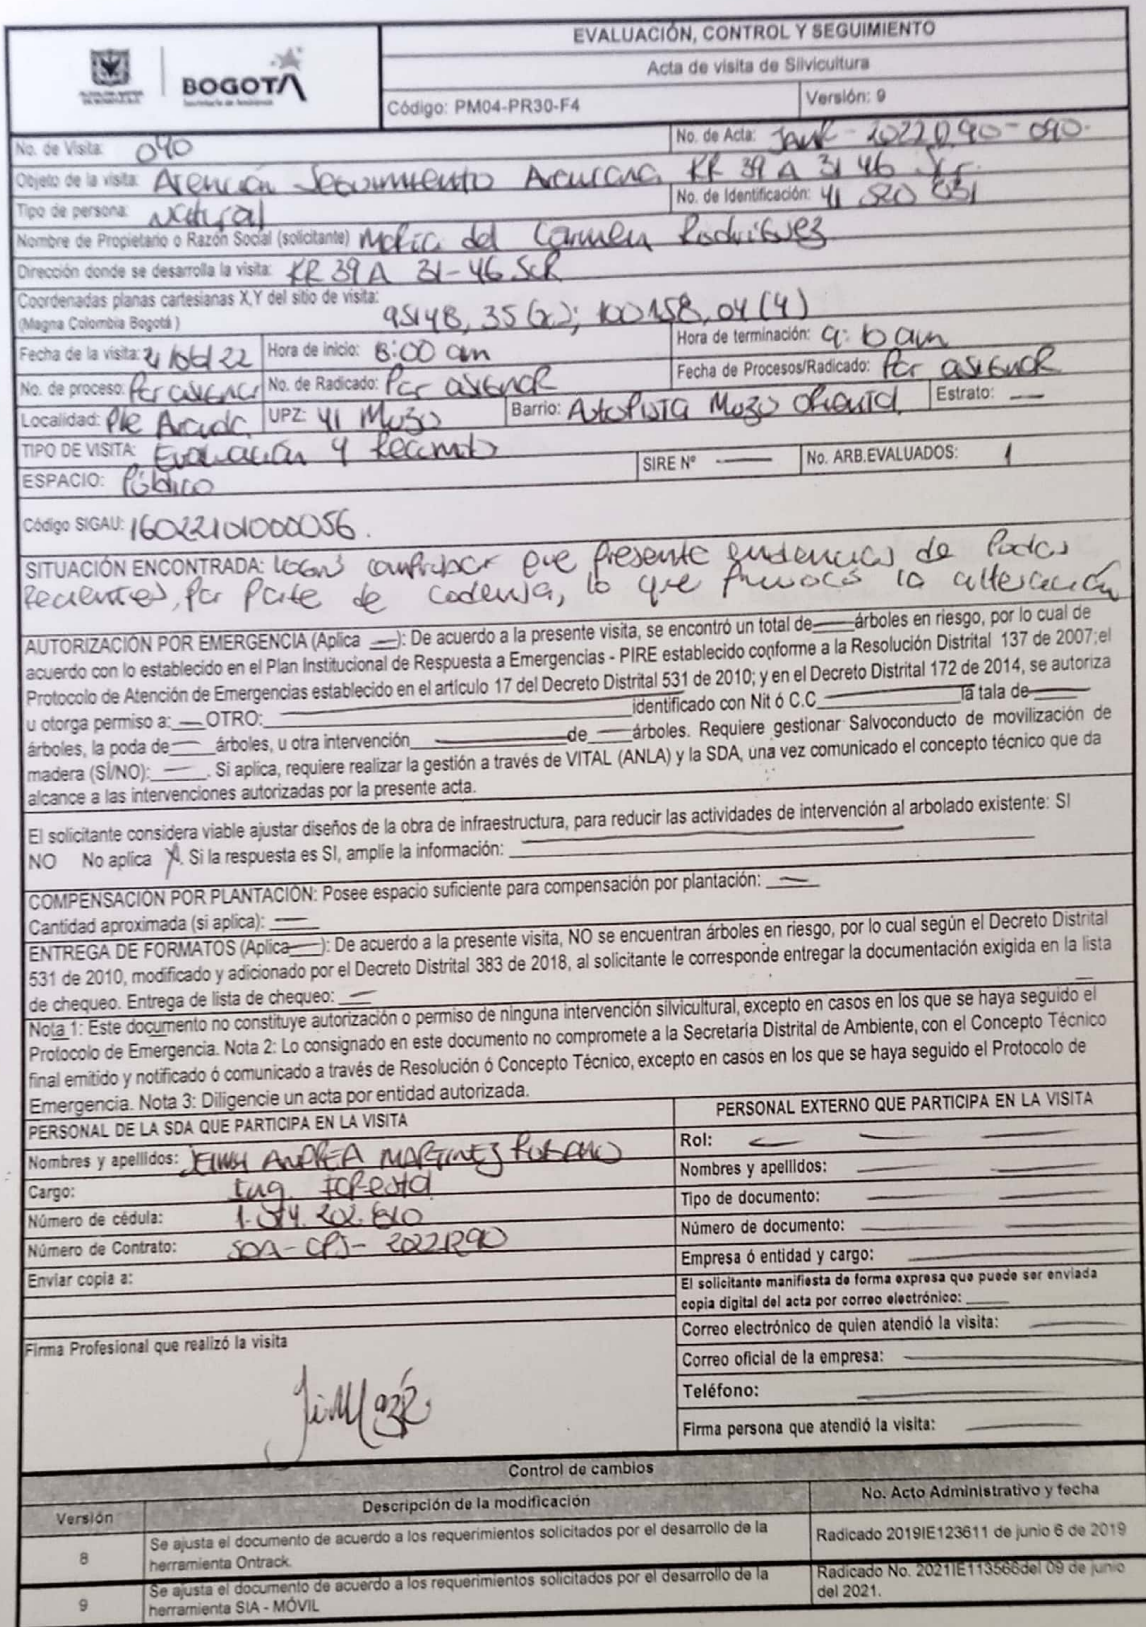 EVALUACIÓN, CONTROL Y SEGUIMIENTO
BOGOTÁ
Acta de visita de Silvicultura
Código: PM04-PR30-F4 Versión: 9
No. de Visita: 090 No. de Acta:
Objeto de la visita: Atención Seguimiento Araucaria KR 39 A 31 46 Sur.
Tipo de persona: Natural No. de Identificación: 41 520 831
Nombre de Propietario o Razón Social (solicitante) María del Carmen Rodriguez
Dirección donde se desarrolla la visita: KR 39 A 31-46 SUR
Coordenadas planas cartesianas X,Y del sitio de visita:
(Magna Colombia Bogotá) 95148,35 (x); 100158,04 (Y)
Fecha de la visita: Hora de inicio: 8:00 am Hora de terminación:
No. de proceso: Por asignar No. de Radicado: Por asignar Fecha de Procesos/Radicado: Por asignar
Localidad: Pte Aranda UPZ: 41 Muzu Barrio: Autopista Muzu Oriental Estrato: —
TIPO DE VISITA: Evaluación y SIRE Nº — No. ARB.EVALUADOS: 1
ESPACIO: Público
Código SIGAU: 16022101000056.
SITUACIÓN ENCONTRADA: comprobar que presente evidencias de Podas
Recientes, por parte de codensa, lo que provocó la alteración
AUTORIZACIÓN POR EMERGENCIA (Aplica —): De acuerdo a la presente visita, se encontró un total de — árboles en riesgo, por lo cual de
acuerdo con lo establecido en el Plan Institucional de Respuesta a Emergencias - PIRE establecido conforme a la Resolución Distrital 137 de 2007;el
Protocolo de Atención de Emergencias establecido en el artículo 17 del Decreto Distrital 531 de 2010; y en el Decreto Distrital 172 de 2014, se autoriza
u otorga permiso a: — OTRO: — identificado con Nit ó C.C — la tala de —
árboles, la poda de — árboles, u otra intervención — de — árboles. Requiere gestionar Salvoconducto de movilización de
madera (SÍ/NO): —. Si aplica, requiere realizar la gestión a través de VITAL (ANLA) y la SDA, una vez comunicado el concepto técnico que da
alcance a las intervenciones autorizadas por la presente acta.
El solicitante considera viable ajustar diseños de la obra de infraestructura, para reducir las actividades de intervención al arbolado existente: SI
NO No aplica X. Si la respuesta es SI, amplíe la información: —
COMPENSACIÓN POR PLANTACIÓN: Posee espacio suficiente para compensación por plantación: —
Cantidad aproximada (si aplica): —
ENTREGA DE FORMATOS (Aplica —): De acuerdo a la presente visita, NO se encuentran árboles en riesgo, por lo cual según el Decreto Distrital
531 de 2010, modificado y adicionado por el Decreto Distrital 383 de 2018, al solicitante le corresponde entregar la documentación exigida en la lista
de chequeo. Entrega de lista de chequeo: —
Nota 1: Este documento no constituye autorización o permiso de ninguna intervención silvicultural, excepto en casos en los que se haya seguido el
Protocolo de Emergencia. Nota 2: Lo consignado en este documento no compromete a la Secretaria Distrital de Ambiente, con el Concepto Técnico
final emitido y notificado ó comunicado a través de Resolución ó Concepto Técnico, excepto en casos en los que se haya seguido el Protocolo de
Emergencia. Nota 3: Diligencie un acta por entidad autorizada.
PERSONAL DE LA SDA QUE PARTICIPA EN LA VISITA PERSONAL EXTERNO QUE PARTICIPA EN LA VISITA
Nombres y apellidos: ANDREA MARTINEZ Rol: —
Cargo: Ing. Forestal Nombres y apellidos: —
Número de cédula: Tipo de documento: —
Número de Contrato: SDA-CPS-20221290 Número de documento: —
Enviar copia a: Empresa ó entidad y cargo: —
El solicitante manifiesta de forma expresa que puede ser enviada
copia digital del acta por correo electrónico:
Firma Profesional que realizó la visita Correo electrónico de quien atendió la visita: —
Correo oficial de la empresa: —
Teléfono: —
Firma persona que atendió la visita: —
Control de cambios
Versión Descripción de la modificación No. Acto Administrativo y fecha
8 Se ajusta el documento de acuerdo a los requerimientos solicitados por el desarrollo de la
herramienta Ontrack. Radicado 2019IE123611 de junio 6 de 2019
9 Se ajusta el documento de acuerdo a los requerimientos solicitados por el desarrollo de la
herramienta SIA - MÓVIL Radicado No. 2021IE113566del 09 de junio
del 2021.